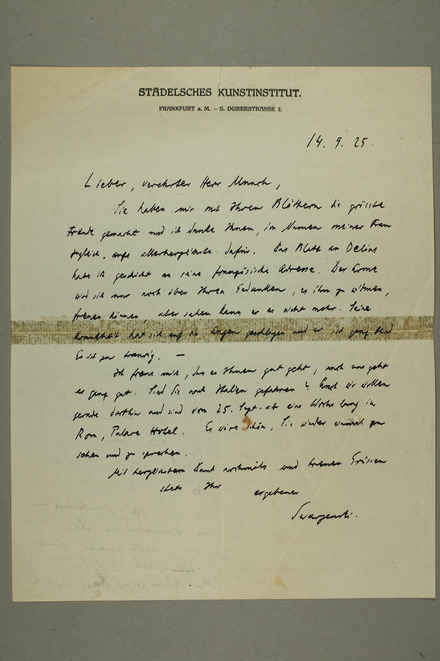 STÄDELSCHES KUNSTINSTITUT.
FRANKFURT a. M. – S. DÜRERSTRASSE 2.
14. 9. 25.
Lieber, verehrter Herr Munch,
Sie haben mir mit Ihren Blättern die grösste
Freude gemacht und ich danke Ihnen, im Namen meiner Frau
zugleich, aufs allerherzlichste dafür. Das Blatt an Delius
habe ich geschickt an seine französische Adresse. Der Arme
wird sich nur noch über Ihren Gedanken, es ihm zu widmen,
freuen können, aber sehen kann er es nicht mehr. Seine
Krankheit hat sich auf die Augen geschlagen und er ist ganz blind
Es ist zu traurig. —
Ich freue mich, dass es Ihnen gut geht, auch uns geht
es ganz gut. Sind Sie nach Italien gefahren? Auch wir wollen
gerade dorthin und sind vom 25. Sept. ab eine Woche lang in
Rom, Palace Hotel. Es wäre schön, Sie wieder einmal zu
sehen und zu sprechen.
Mit herzlichstem Dank nochmals und treuen Grüssen
stets Ihr ergebener
Swarzenski.